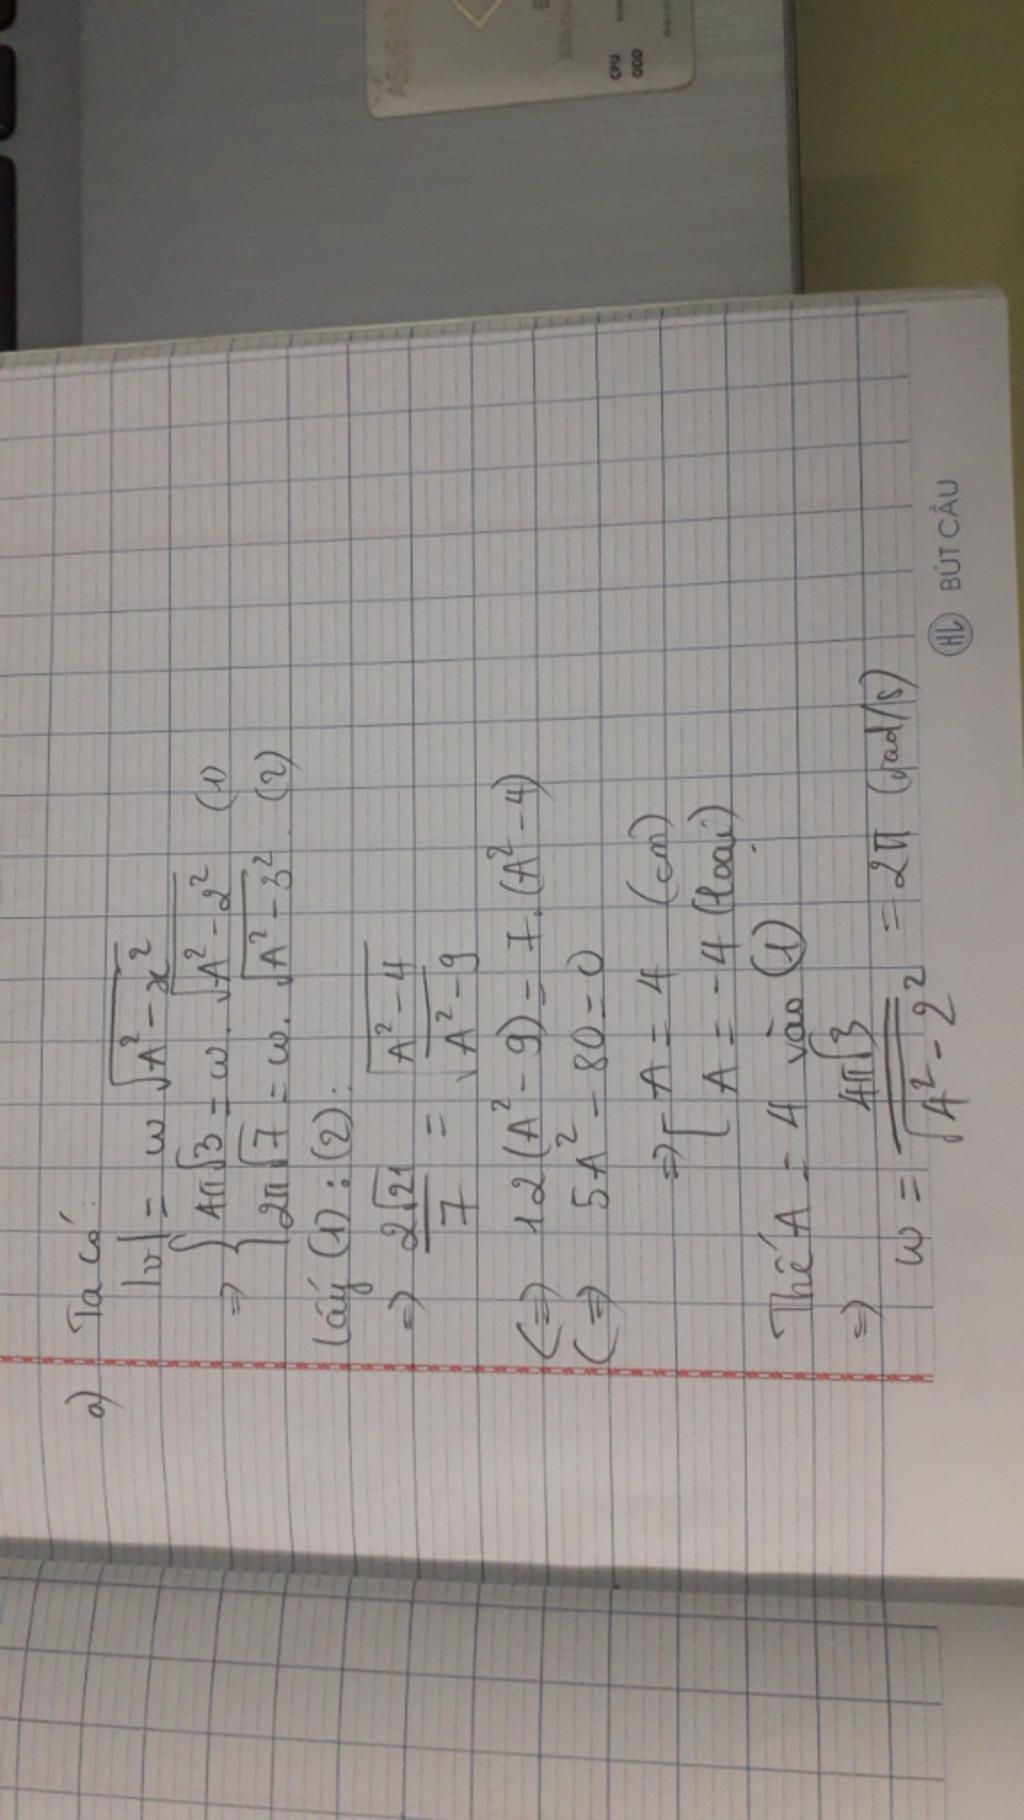 a) Ta có:
|v| = ω √(A² - x²)
=> { 4π√3 = ω. √(A² - 2²) (1)
2π√7 = ω. √(A² - 3²) (2)
Lấy (1) : (2):
=> 2√21 / 7 = √(A² - 4) / √(A² - 9)
(=) 12 (A² - 9) = 7. (A² - 4)
(=) 5A² - 80 = 0
=> [ A = 4 (cm)
A = -4 (loại)
Thế A = 4 vào (1)
=> ω = 4π√3 / √(4² - 2²) = 2π (rad/s)
HL BÚT CẦU
CPU
ODD